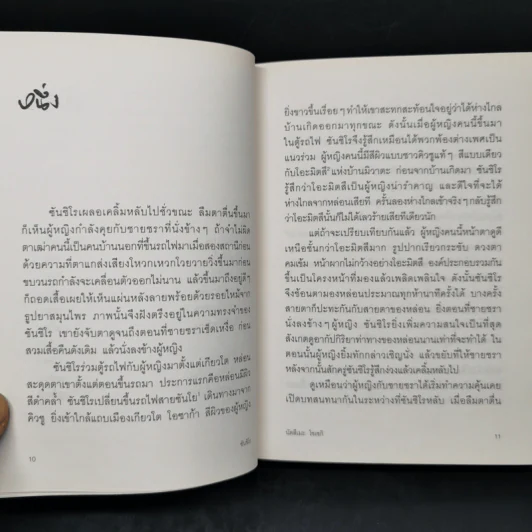 หนึ่ง
ซันชิโรเผลอเคลิ้มหลับไปชั่วขณะ ลืมตาตื่นขึ้นมา
ก็เห็นผู้หญิงกำลังคุยกับชายชราที่นั่งข้างๆ ถ้าจำไม่ผิด
ตาเฒ่าคนนี้เป็นคนบ้านนอกที่ขึ้นรถไฟมาเมื่อสองสถานีก่อน
ด้วยความที่ตาแกส่งเสียงโหวกเหวกโวยวายวิ่งขึ้นมาก่อน
ขบวนรถไฟกำลังจะเคลื่อนตัวออกไม่นาน แล้วขึ้นมาถึงอยู่ดีๆ
ก็ถอดเสื้อเผยให้เห็นแผ่นหลังลายพร้อยด้วยรอยไหม้จาก
ธูปยาสมุนไพร ภาพนั้นจึงฝังตรึงอยู่ในความทรงจำของ
ซันชิโร เขายังจับตาดูจนถึงตอนที่ชายชราเช็ดเหงื่อ ก่อน
สวมเสื้อคืนดังเดิม แล้วนั่งลงข้างผู้หญิง
ซันชิโรร่วมตู้รถไฟกับผู้หญิงมาตั้งแต่เกียวโต หล่อน
สะดุดตาเขาตั้งแต่ตอนขึ้นรถมา ประการแรกคือหล่อนมีผิว
สีดำคล้ำ ซันชิโรเปลี่ยนขึ้นรถไฟสายซันโย¹ เดินทางมาจาก
คิวชู ยิ่งเข้าใกล้แถบเมืองเกียวโต โอซาก้า สีผิวของผู้หญิง
10
ซันชิโร
ยิ่งขาวขึ้นเรื่อยๆ ทำให้เขาสะทกสะท้อนใจอยู่ว่าได้ห่างไกล
บ้านเกิดออกมาทุกขณะ ดังนั้นเมื่อผู้หญิงคนนี้ขึ้นมา
ในตู้รถไฟ ซันชิโรจึงรู้สึกเหมือนได้พวกพ้องต่างเพศเป็น
แนวร่วม ผู้หญิงคนนี้มีสีผิวแบบชาวคิวชูแท้ๆ สีแบบเดียว
กับโอะมิตสึ² แห่งบ้านมิวาตะ ก่อนจากบ้านเกิดมา ซันชิโร
รู้สึกว่าโอะมิตสึเป็นผู้หญิงน่ารำคาญ และดีใจที่จะได้
ห่างไกลจากหล่อนเสียที ครั้นลองห่างไกลเข้าจริงๆ กลับรู้สึก
ว่าโอะมิตสึนั้นก็ไม่ได้เลวร้ายเสียทีเดียวนัก
แต่ถ้าจะเปรียบเทียบกันแล้ว ผู้หญิงคนนี้หน้าตาดูดี
เหนือชั้นกว่าโอะมิตสึมาก รูปปากเรียวกระชับ ดวงตา
คมเข้ม หน้าผากไม่กว้างอย่างโอะมิตสึ องค์ประกอบรวมกัน
ขึ้นเป็นโครงหน้าที่มองแล้วเพลิดเพลินใจ ดังนั้นซันชิโร
จึงช้อนตามองหล่อนประมาณทุกห้านาทีครั้งได้ บางครั้ง
สายตาก็ปะทะกันกับสายตาของหล่อน ยิ่งตอนที่ชายชรา
นั่งลงข้างๆ ผู้หญิง ซันชิโรยิ่งเพิ่มความสนใจเป็นที่สุด
สังเกตดูอากัปกิริยาท่าทางของหล่อนนานเท่าที่จะทำได้ ใน
ตอนนั้นผู้หญิงยิ้มทักกล่าวเชิญนั่ง แล้วขยับที่ให้ชายชรา
หลังจากนั้นสักครู่ซันชิโรรู้สึกง่วงแล้วเคลิ้มหลับไป
ดูเหมือนว่าผู้หญิงกับชายชราได้เริ่มทำความคุ้นเคย
เปิดบทสนทนากันในระหว่างที่ซันชิโรหลับ เมื่อลืมตาตื่น
นัตสึเมะ โซเซกิ
11